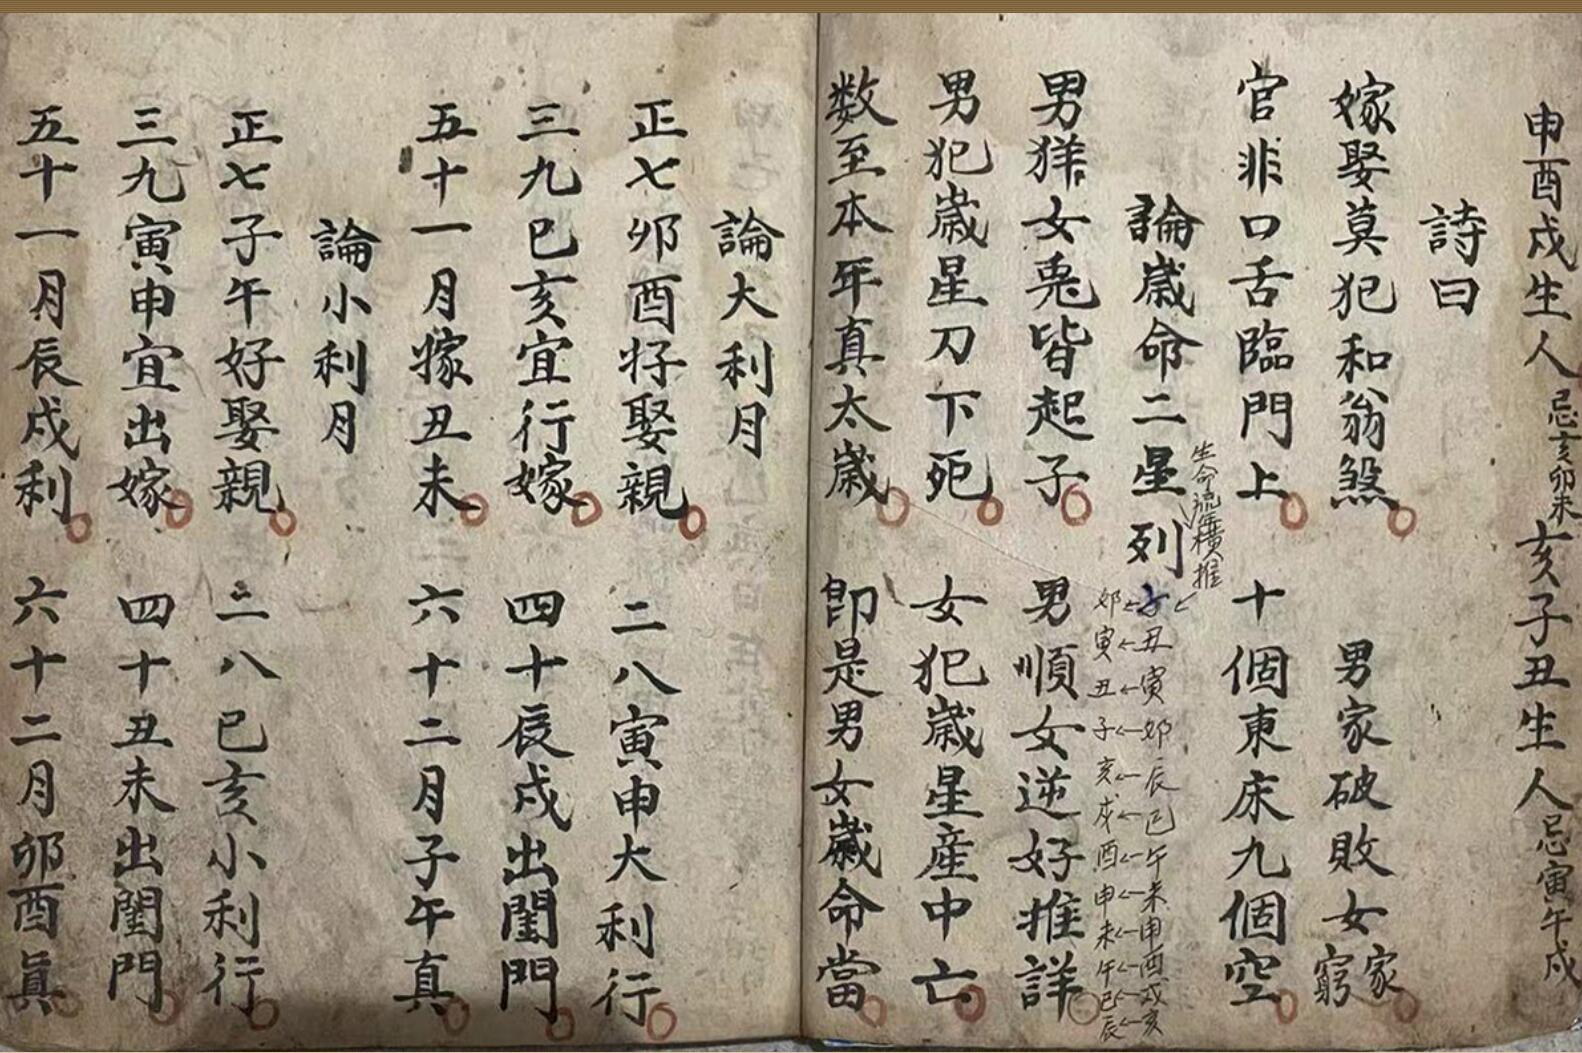 申酉戌生人忌亥卯未 亥子丑生人忌寅午戌
詩曰
嫁娶莫犯和翁煞 男家破敗女家窮
官非口舌臨門上 十個東床九個空
論歲命二星列
生命流年橫推
子丑寅卯辰巳午未申酉戌亥
卯寅丑子亥戌酉申未午巳辰
男猪女兎皆起子 男順女逆好推詳
男犯歲星刀下死 女犯歲星産中亡
数至本年真太歲 卽是男女歲命當
論大利月
正七卯酉好娶親 二八寅申大利行
三九巳亥宜行嫁 四十辰戌出閨門
五十一月嫁丑未 六十二月子午真
論小利月
正七子午好娶親 二八巳亥小利行
三九寅申宜出嫁 四十丑未出閨門
五十一月辰戌利 六十二月卯酉眞